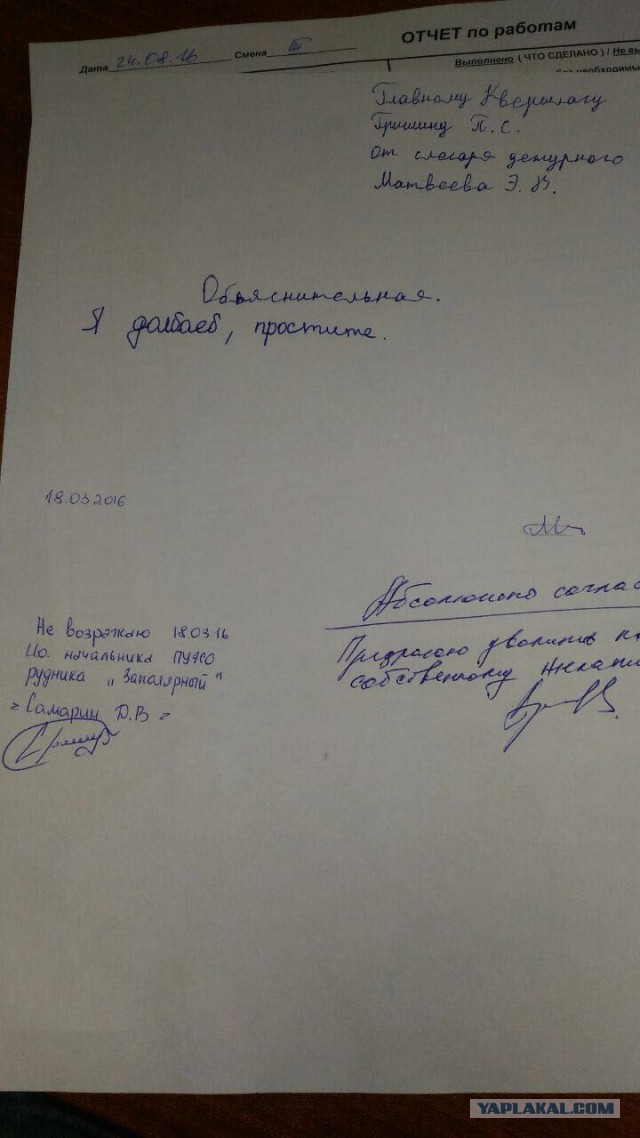 ОТЧЕТ по работам
Дата 24.08.16 Смена III
Выполнено ( ЧТО СДЕЛАНО ) / Не вы
необходимы
Главному Квершлагу
Гришину П. С.
от слесаря дежурного
Матвеева Э. В.
Объяснительная.
Я долбаеб, простите.
18.03 2016
Абсолютно соглас
Не возражаю 18.03.16
И.о. начальника
рудника "Заполярный"
= Самарин Д.В =
Предлагаю уволить по
собственному желани
YAPLAKAL.COM